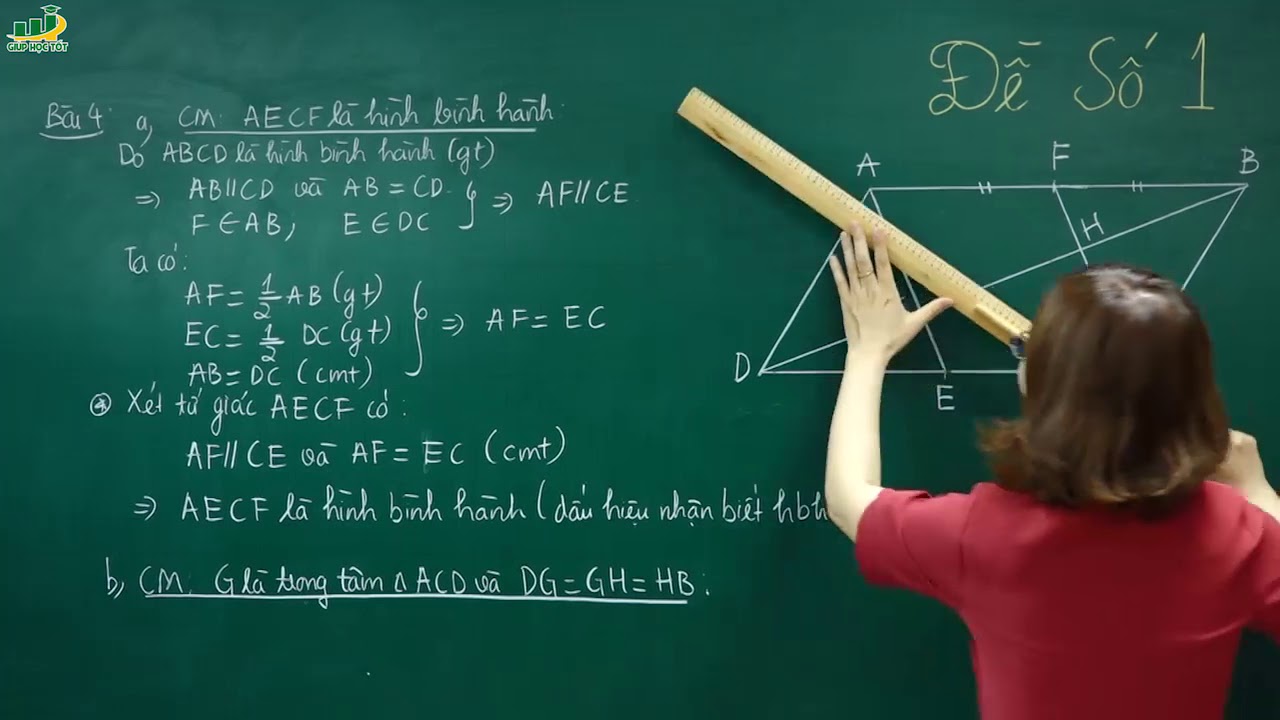 GIUP HỌC TỐT
Đề Số 1
Bài 4: a, CM: AECF là hình bình hành:
Do ABCD là hình bình hành (gt)
=> AB//CD và AB = CD.
F ∈ AB, E ∈ DC
} => AF//CE
Ta có:
AF = 1/2 AB (gt)
EC = 1/2 DC (gt)
AB = DC (cmt)
} => AF = EC
* Xét tứ giác AECF có:
AF//CE và AF = EC (cmt)
=> AECF là hình bình hành (dấu hiệu nhận biết hbh
b, CM: G là trọng tâm Δ ACD và DG = GH = HB:
A F B
H
D E